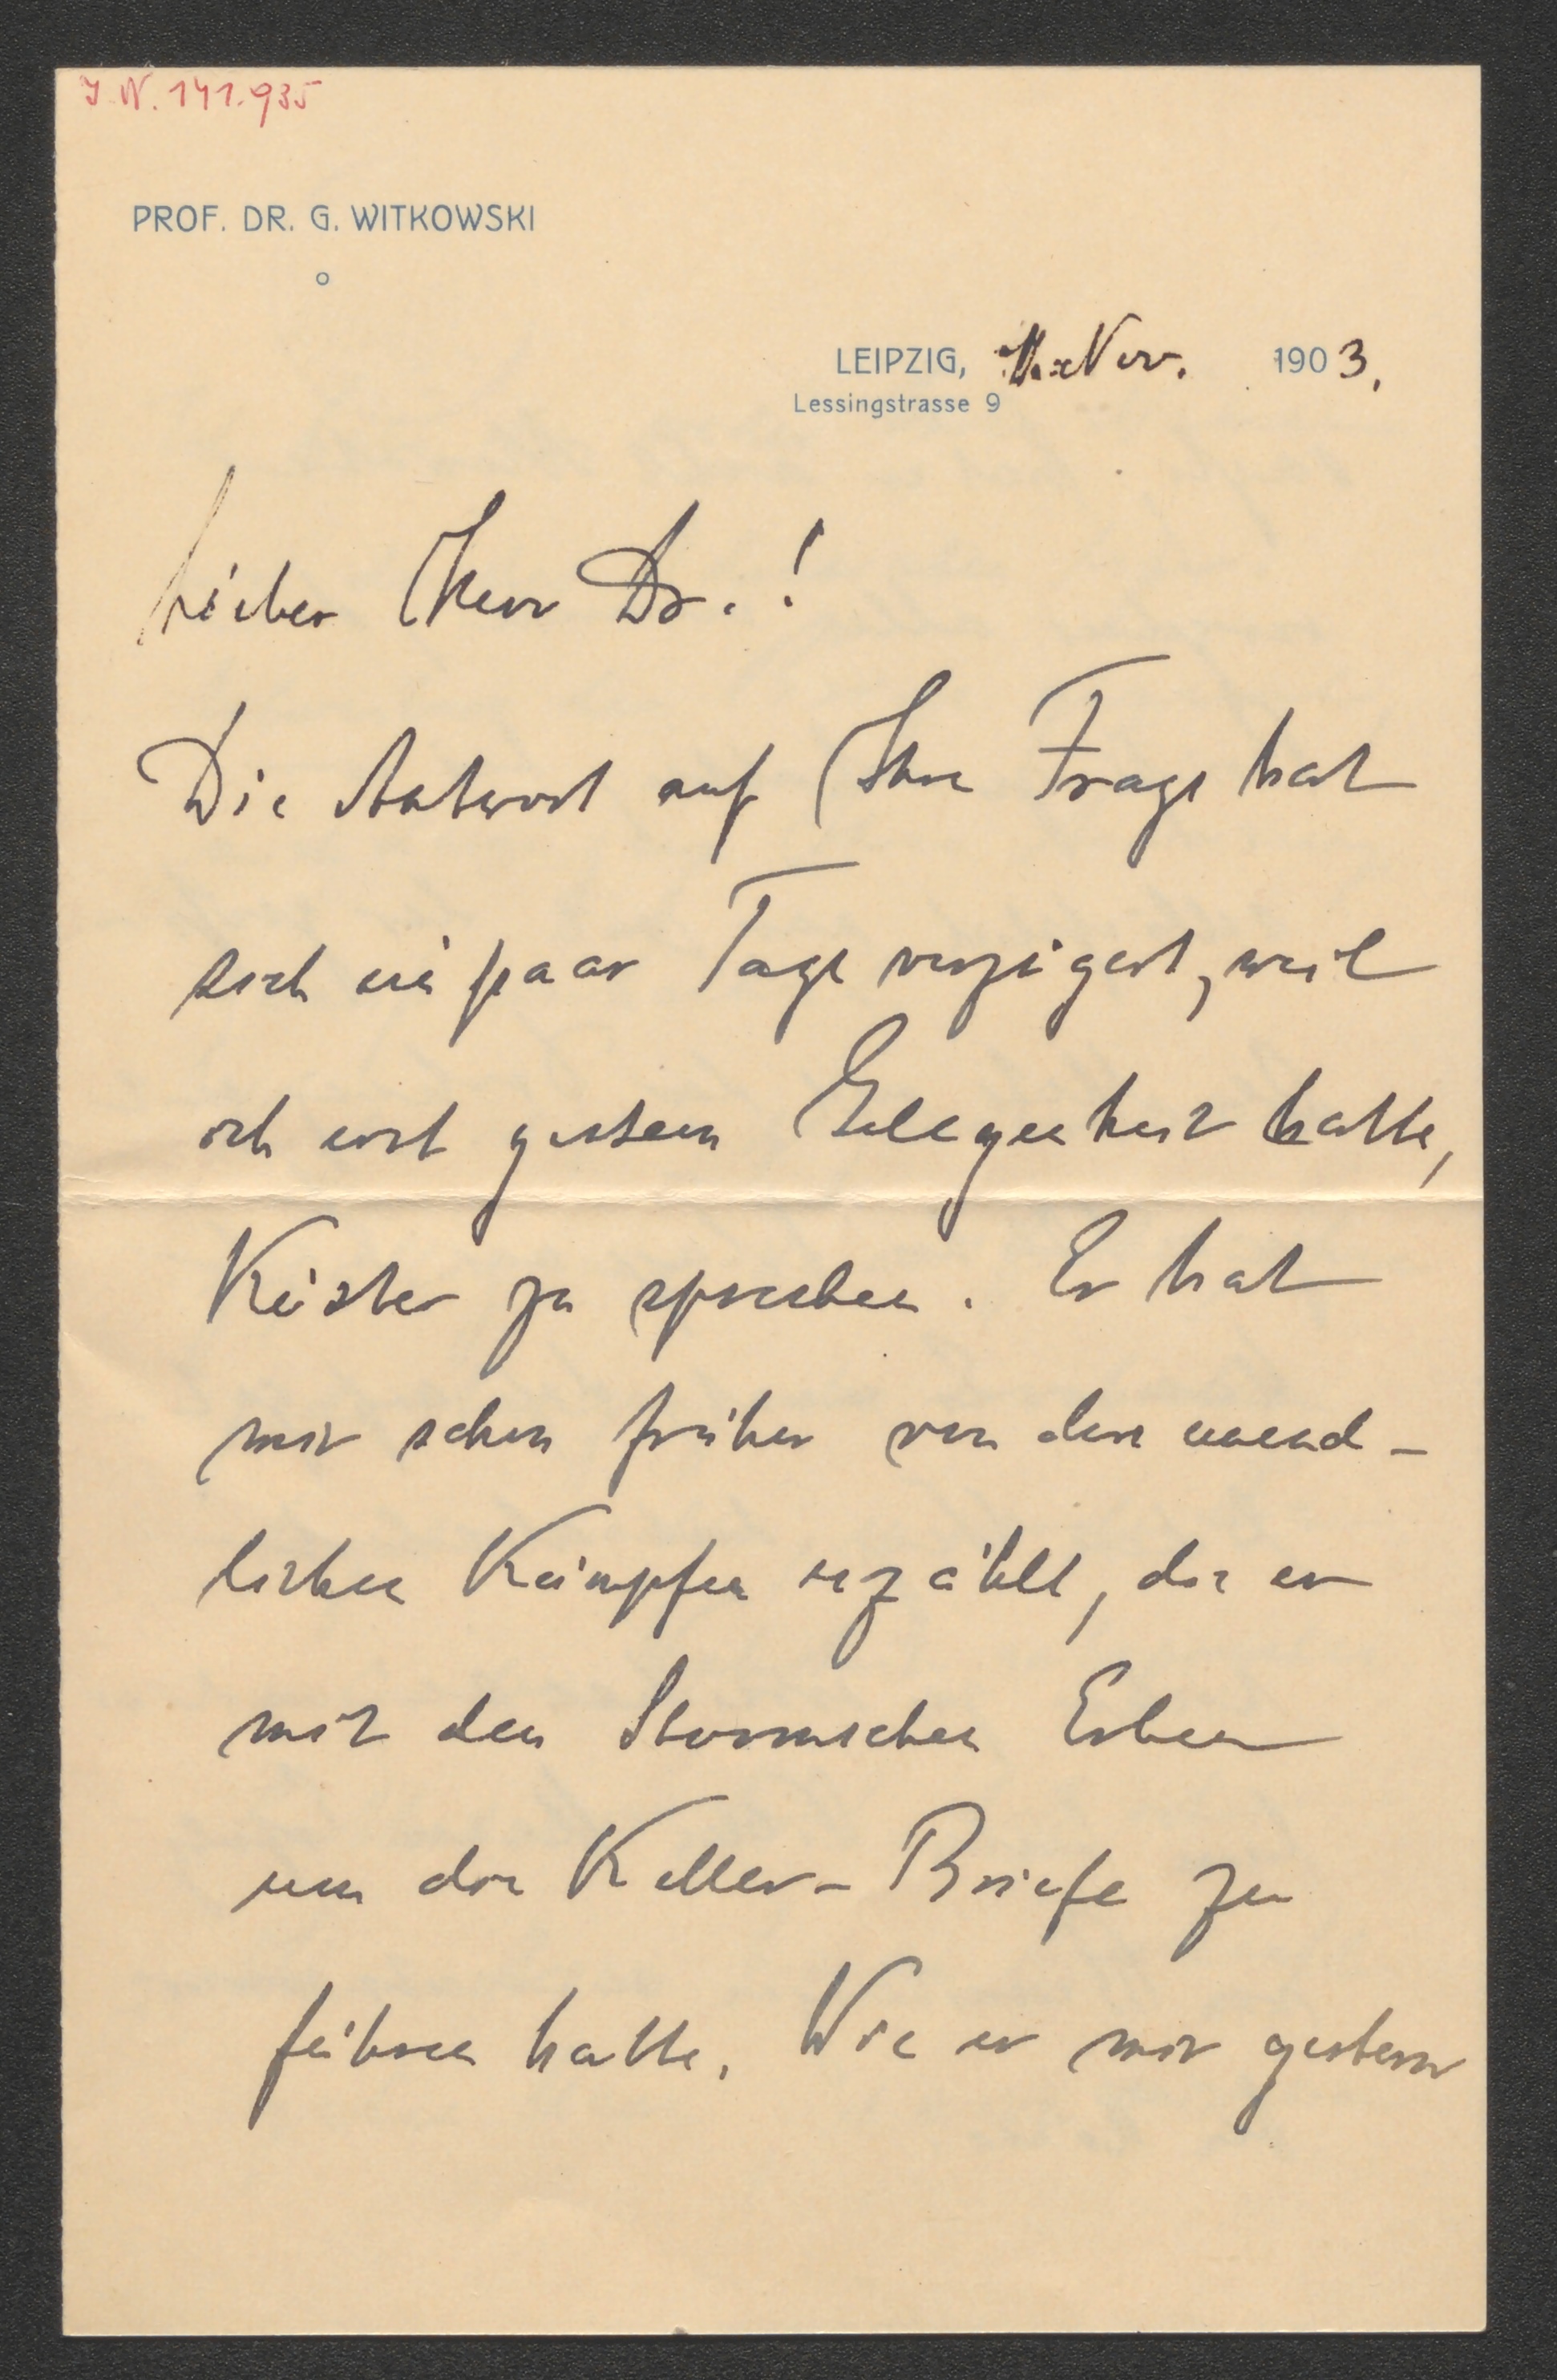 J. N. 141.935
PROF. DR. G. WITKOWSKI
LEIPZIG, Nov. 1903.
Lessingstrasse 9
Lieber Herr Dr.!
Die Antwort auf Ihre Frage hat
sich ein paar Tage verzögert, weil
ich erst gestern Gelegenheit hatte,
Köster zu sprechen. Er hat
mir schon früher von den unend-
lichen Kämpfen erzählt, die er
mit den Stormschen Erben
um die Keller-Briefe zu
führen hatte. Wie er mir gestern